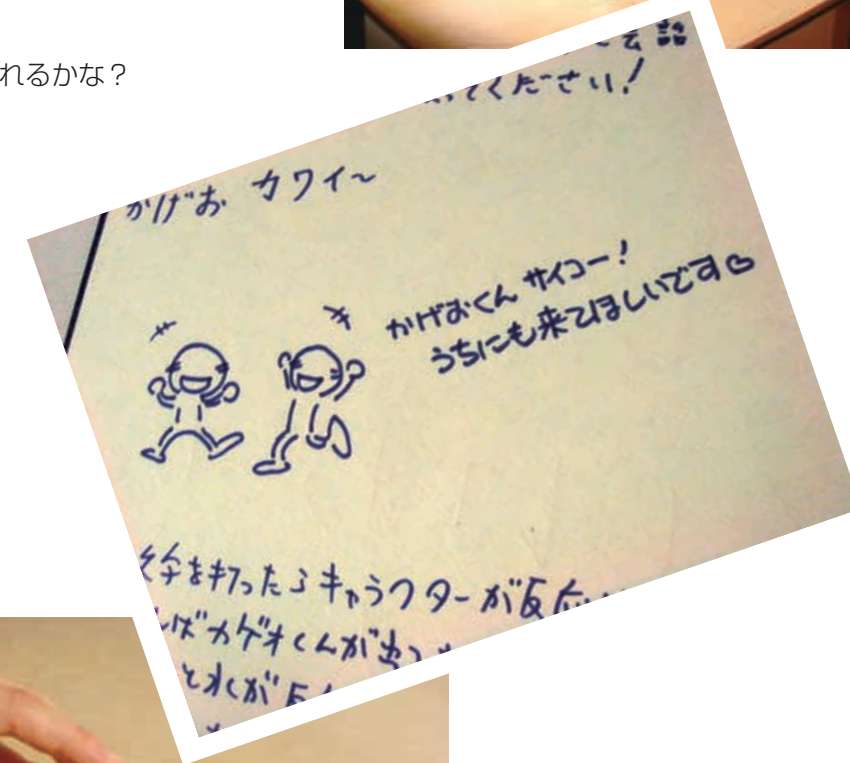 れるかな？
ってください！
かげお カワイ～
かげおくん サイコー！
うちにも来てほしいです♡
を打ったらキャラクターが反応
ばカゲオくんが出
とそれが反